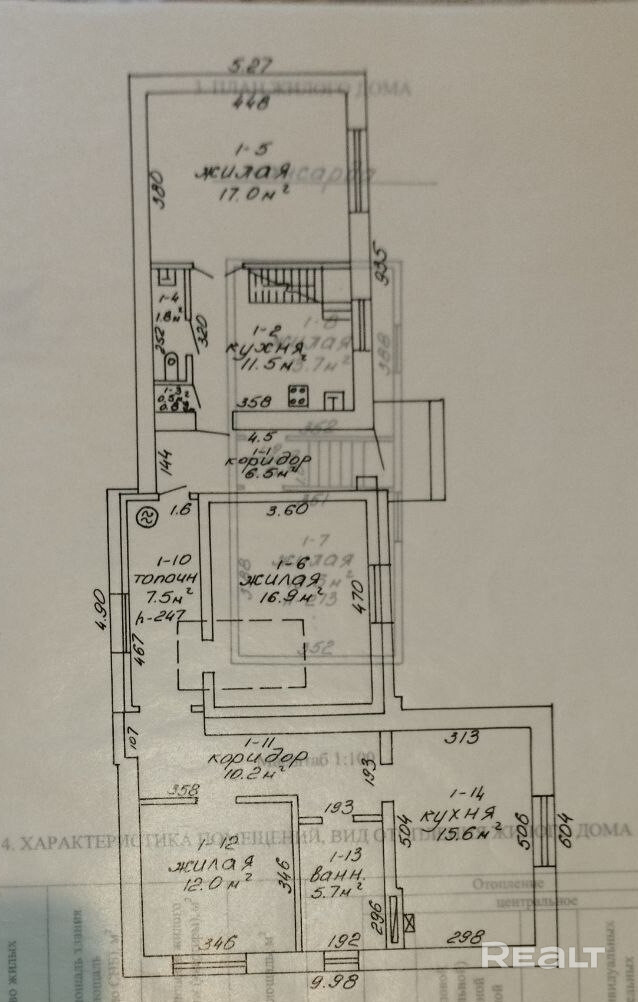 5.27
3. ПЛАН ЖИЛОГО ДОМА
448
1-5
жилая
17.0 м²
мансарда
380
935
1-4
1.8 м²
252
320
1-2
кухня
11.5 м²
1-8
жилая
388
1-3
358
362
4.5
1-1
коридор
6.5 м²
144
361
1.6
3.60
1-10
топочн
7.5 м²
h-247
1-6
жилая
16.9 м²
1-7
жилая
273
4.90
467
470
352
107
1-11
коридор
10.2 м²
Масштаб 1:100
193
313
358
193
1-14
кухня
15.6 м²
504
506
604
4. ХАРАКТЕРИСТИКА ПОМЕЩЕНИЙ, ВИД ОТОПЛЕНИЯ ЖИЛОГО ДОМА
1-12
жилая
12.0 м²
346
1-13
ванн.
5.7 м²
296
Отопление
центральное
346
192
298
9.98
REALT